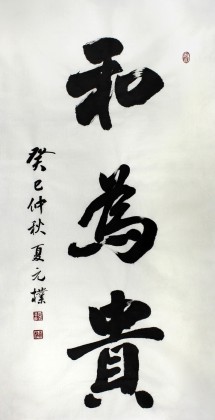 和為貴
癸巳仲秋夏元樸